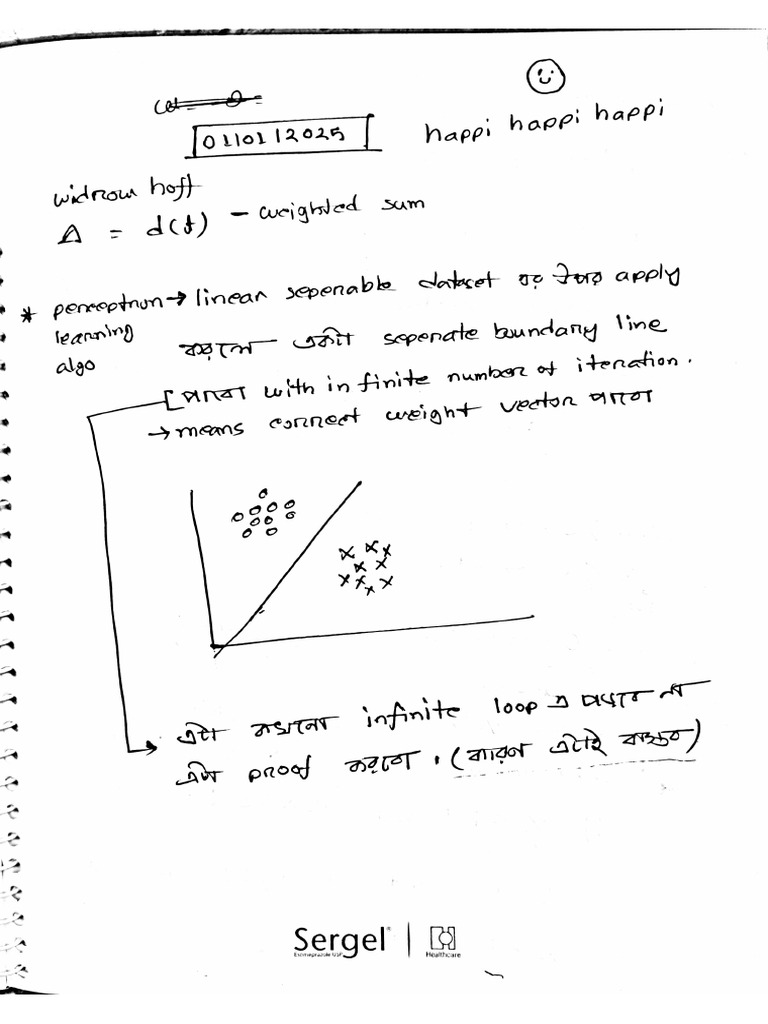 01|01|2025
happi happi happi
widrow hoff
Δ = d(t) - weighted sum
* perceptron → linear seperable dataset এর উপর apply
learning করলে একটা seperate boundary line
algo [পাবো with in finite number of iteration.
→ means correct weight vector পাবো
এটা কখনো infinite loop এ পড়বে না
এটা proof করবো. (কারণ এটাই বাস্তব)
Sergel | Healthcare
Esomeprazole USP